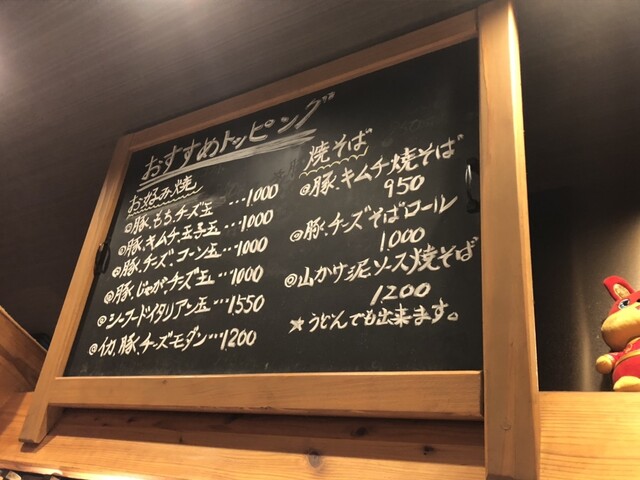 おすすめトッピング
お好み焼
◎豚、もち、チーズ玉…1000
◎豚、キムチ、玉子玉…1000
◎豚、チーズ、コーン玉…1000
◎豚、じゃが、チーズ玉…1000
◎シーフードイタリアン玉…1550
◎イカ、豚、チーズモダン…1200
焼そば
◎豚、キムチ焼そば
950
◎豚、チーズそばロール
1000
◎山かけ泥ソース焼そば
1200
★うどんでも出来ます。